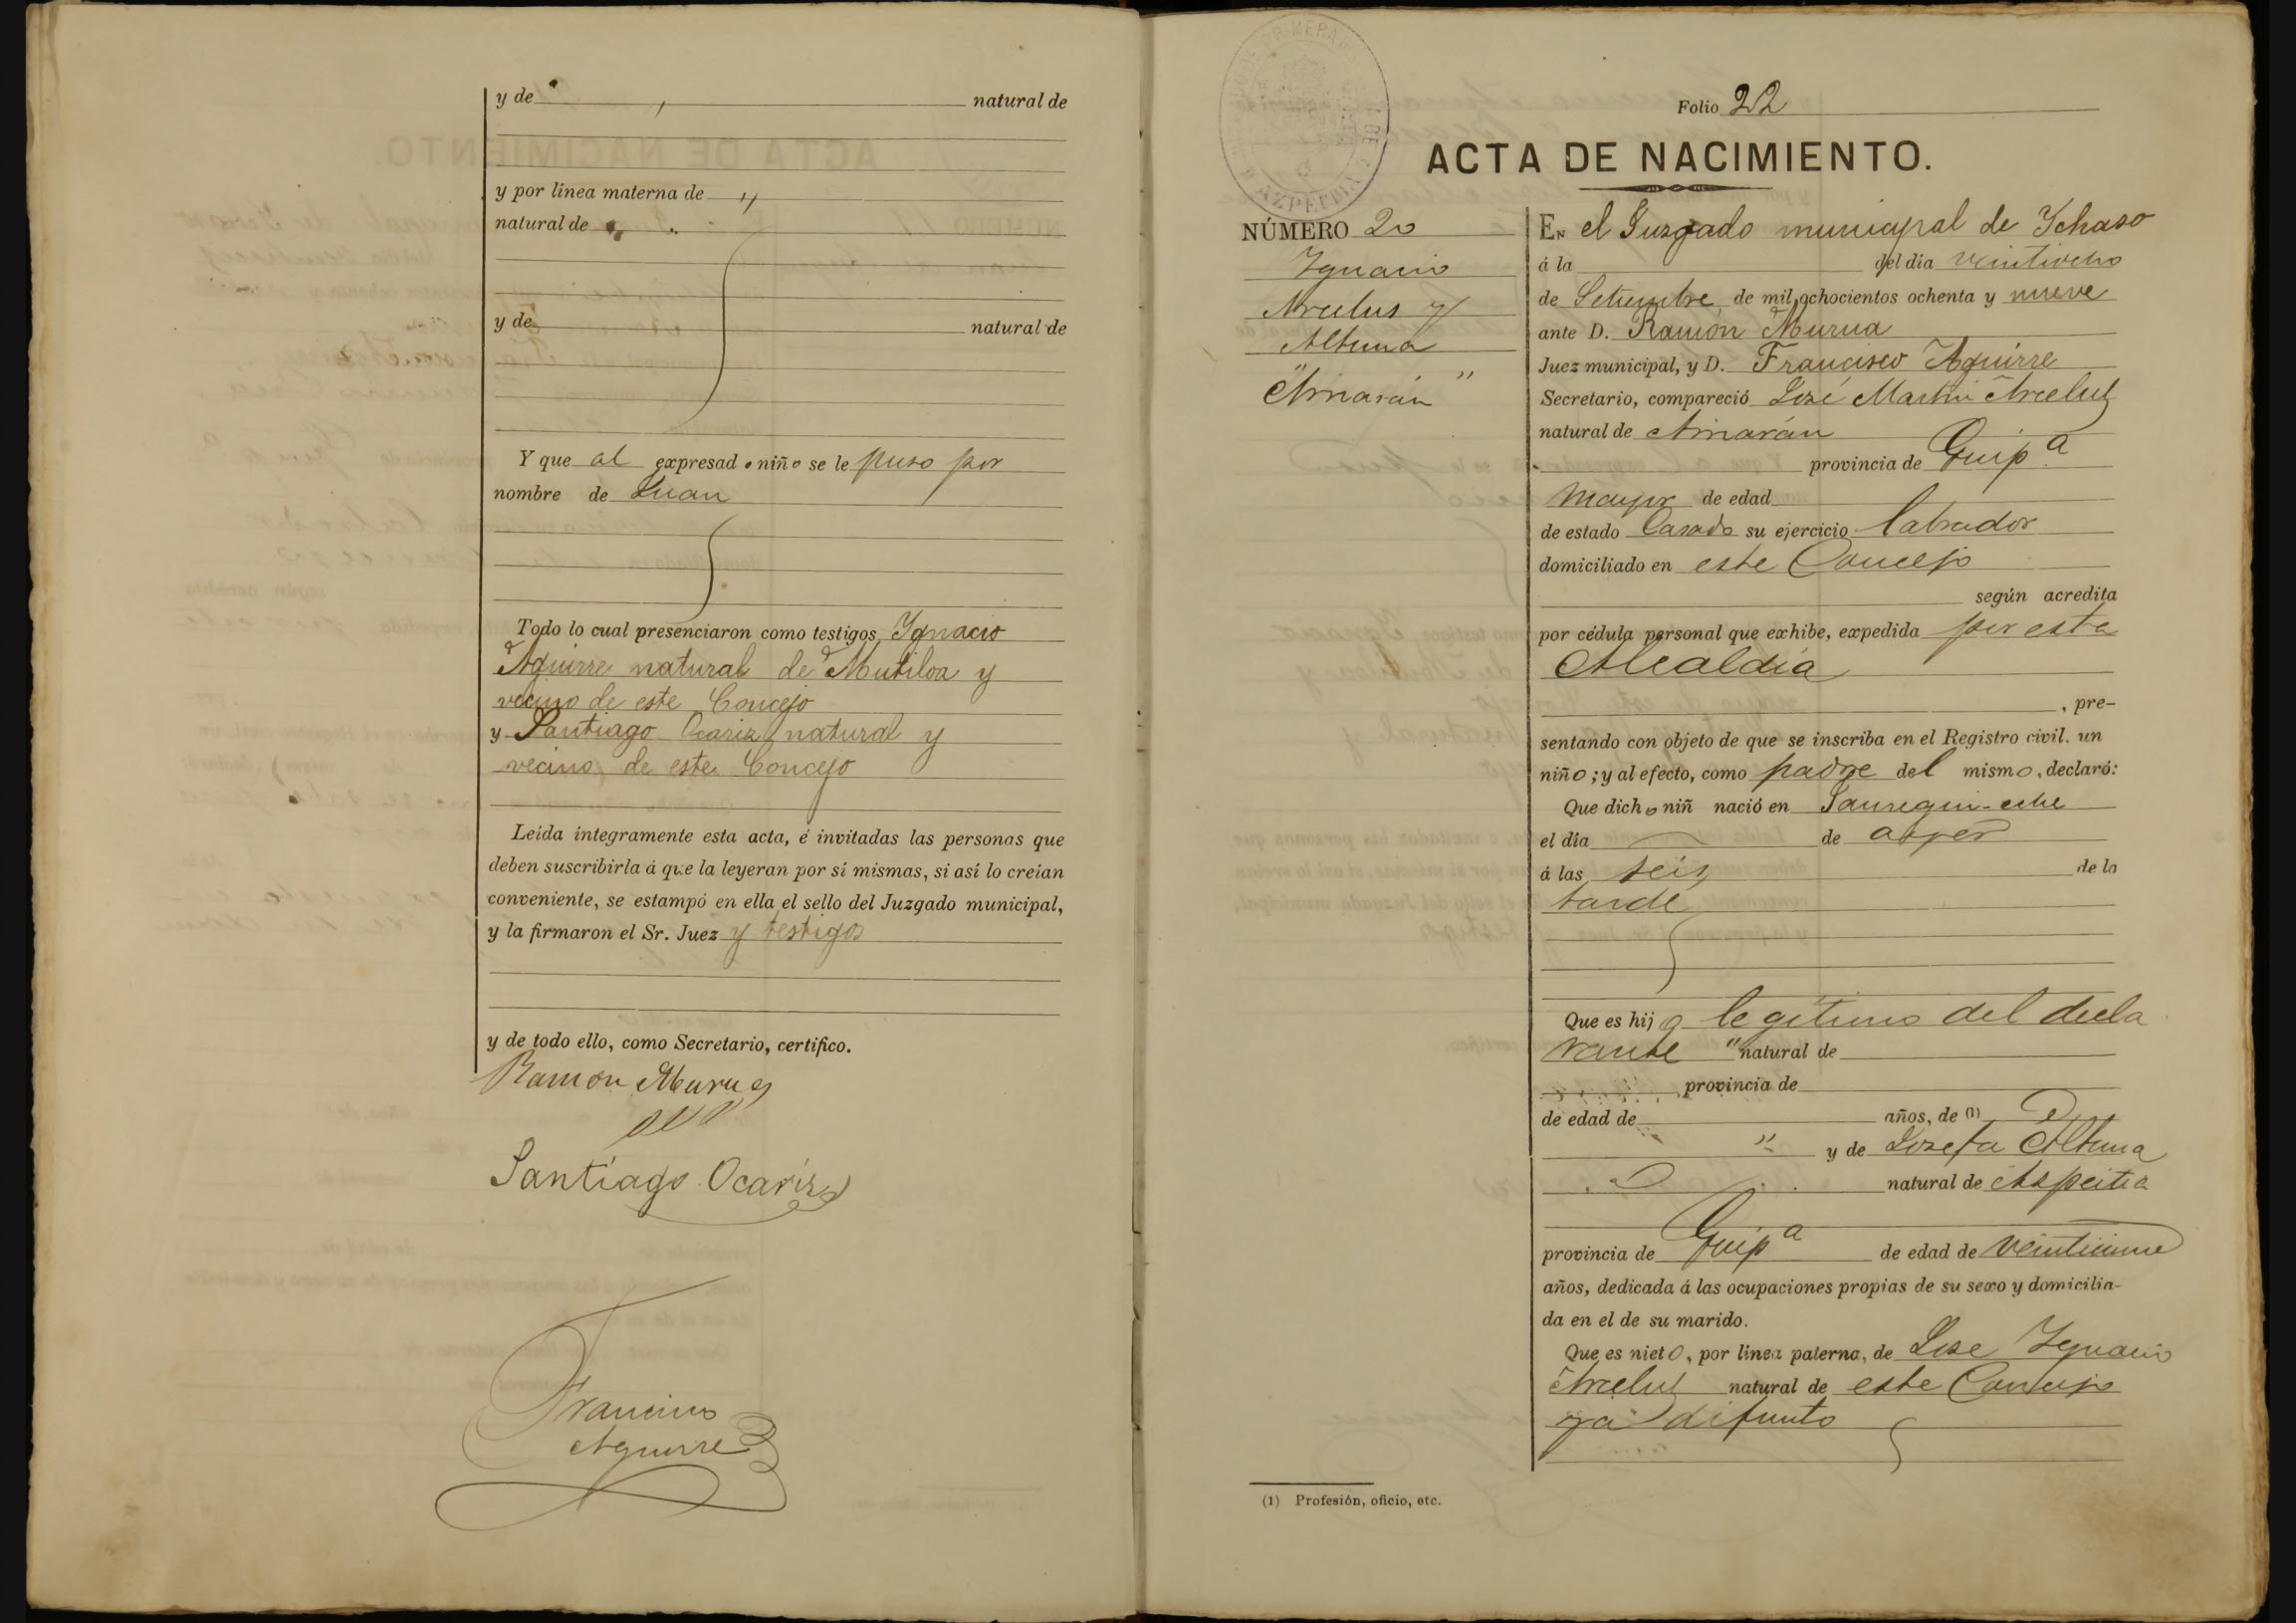 y de natural de
y por línea materna de "
natural de
y de natural de
Y que al expresado niño se le puso por
nombre de Juan
Todo lo cual presenciaron como testigos, Ygnacio
Aguirre natural de Mutiloa y
vecino de este Concejo
y Santiago Ocariz natural y
vecino de este Concejo
Leída íntegramente esta acta, é invitadas las personas que
deben suscribirla á que la leyeran por sí mismas, si así lo creían
conveniente, se estampó en ella el sello del Juzgado municipal,
y la firmaron el Sr. Juez y testigos
y de todo ello, como Secretario, certifico.
Ramon Murua
Santiago Ocariz
Francisco
Aguirre
Folio 22
ACTA DE NACIMIENTO.
AZPEITIA
NÚMERO 20
Ygnacio
Arcelus y
Altuna
"Arriarán"
EN el Juzgado municipal de Ychaso
á la del día veintiocho
de Setiembre de mil ochocientos ochenta y nueve
ante D. Ramón Murua
Juez municipal, y D. Francisco Aguirre
Secretario, compareció José Martin Arceluz
natural de Arriarán
provincia de Guipª
mayor de edad
de estado Casado su ejercicio labrador
domiciliado en este Concejo
según acredita
por cédula personal que exhibe, expedida por esta
Alcaldía
, pre-
sentando con objeto de que se inscriba en el Registro civil. un
niño; y al efecto, como padre del mismo, declaró:
Que dicho niñ nació en Jauregui-eche
el día de ayer
á las seis de la
tarde
Que es hijo legítimo del decla
rante " natural de
provincia de
de edad de años, de (1)
" y de Josefa Altuna
natural de Aspeitia
provincia de Guipª de edad de veintinueve
años, dedicada á las ocupaciones propias de su sexo y domicilia-
da en el de su marido.
Que es nieto, por línea paterna, de Jose Ygnacio
Arceluz natural de este Concejo
ya difunto
(1) Profesión, oficio, etc.